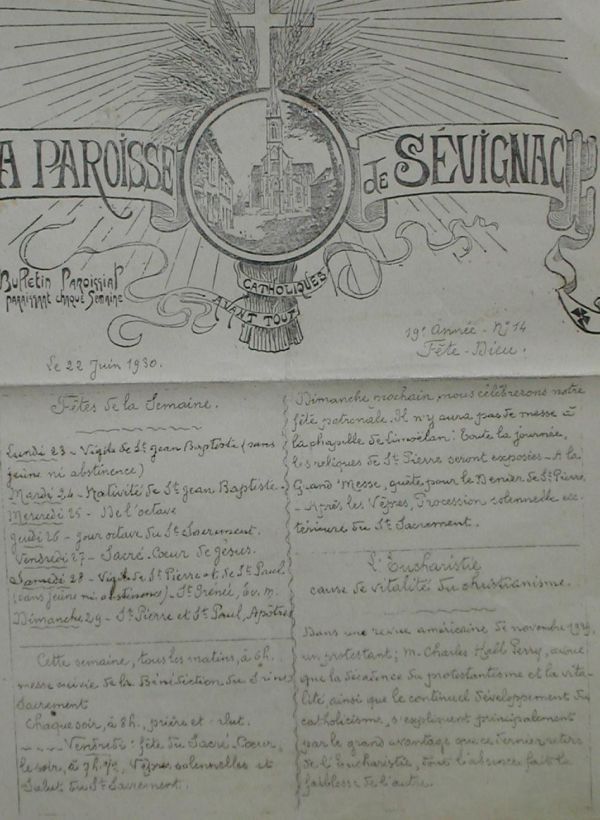 A PAROISSE
de SÉVIGNAC
Bulletin Paroissial
paraissant chaque Semaine
CATHOLIQUES
AVANT TOUT
19e Année - No 14
Fête-Dieu.
Le 22 Juin 1930.
Fêtes de la Semaine.
Lundi 23 - Vigile de St Jean Baptiste (sans
jeûne ni abstinence)
Mardi 24 - Nativité de St Jean Baptiste -
Mercredi 25 - De l'octave
Jeudi 26 - jour octave du St Sacrement.
Vendredi 27 - Sacré-Coeur de Jésus.
Samedi 28 - Vigile de St Pierre et de St Paul
(sans jeûne ni abstinence) - St Irénée, Ev. m.
Dimanche 29 - St Pierre et St Paul, Apôtres
Cette semaine, tous les matins, à 6h.
messe suivie de la Bénédiction du
Sacrement
Chaque soir, à 8h., prière et salut.
Vendredi : fête du Sacré-Coeur,
le soir, à Vêpres solennelles et
Salut du St Sacrement.
Dimanche prochain, nous célèbrerons notre
fête patronale. Il n'y aura pas de messe à
la chapelle de Limoëlan : toute la journée,
les reliques de St Pierre seront exposées - A la
Grand'Messe, quête pour le Denier de St Pierre.
- Après les Vêpres, Procession solennelle ex-
térieure du St Sacrement.
L'Eucharistie
cause de vitalité du christianisme.
Dans une revue américaine de novembre 1929,
un protestant, M. Charles Hall Perry, avoue
que la décadence du protestantisme et la vita-
lité ainsi que le continuel développement du
catholicisme, s'expliquent principalement
par le grand avantage que ce dernier retire
de l'Eucharistie, dont l'absence fait la
faiblesse de l'autre.